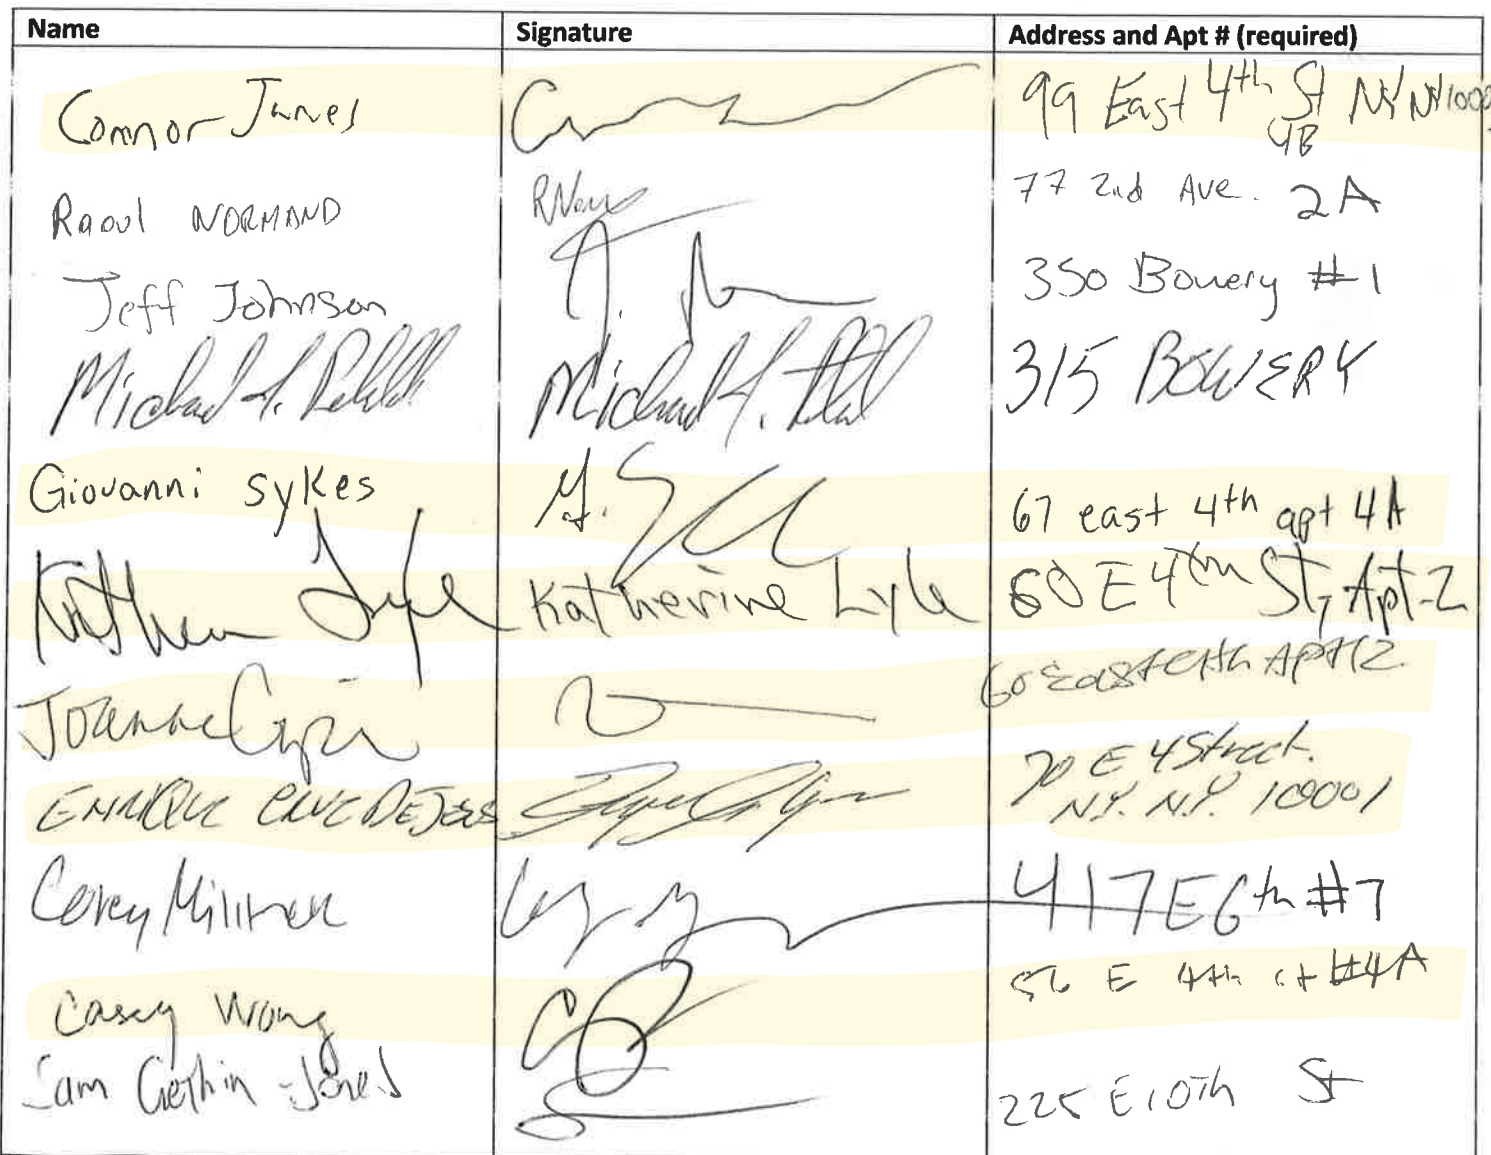 Name Signature Address and Apt # (required)
Connor James 99 East 4th St NY NY 1000
4B
Raoul NORMAND RNorm 77 2nd Ave. 2A
Jeff Johnson J. 350 Bowery #1
Michael J. Michael J. 315 BOWERY
Giovanni Sykes G. 67 east 4th apt 4A
Katherine Lyle Katherine Lyle 60 E 4th St, Apt 2
Joanne 60 East 4th Apt 12
ENRIQUE CRUZ DEJESUS 70 E 4 Street.
N.Y. N.Y. 10001
Corey 417 E 6th #7
Casey Wong 56 E 4th st #4A
Sam Gethin-Jones 225 E 10th St